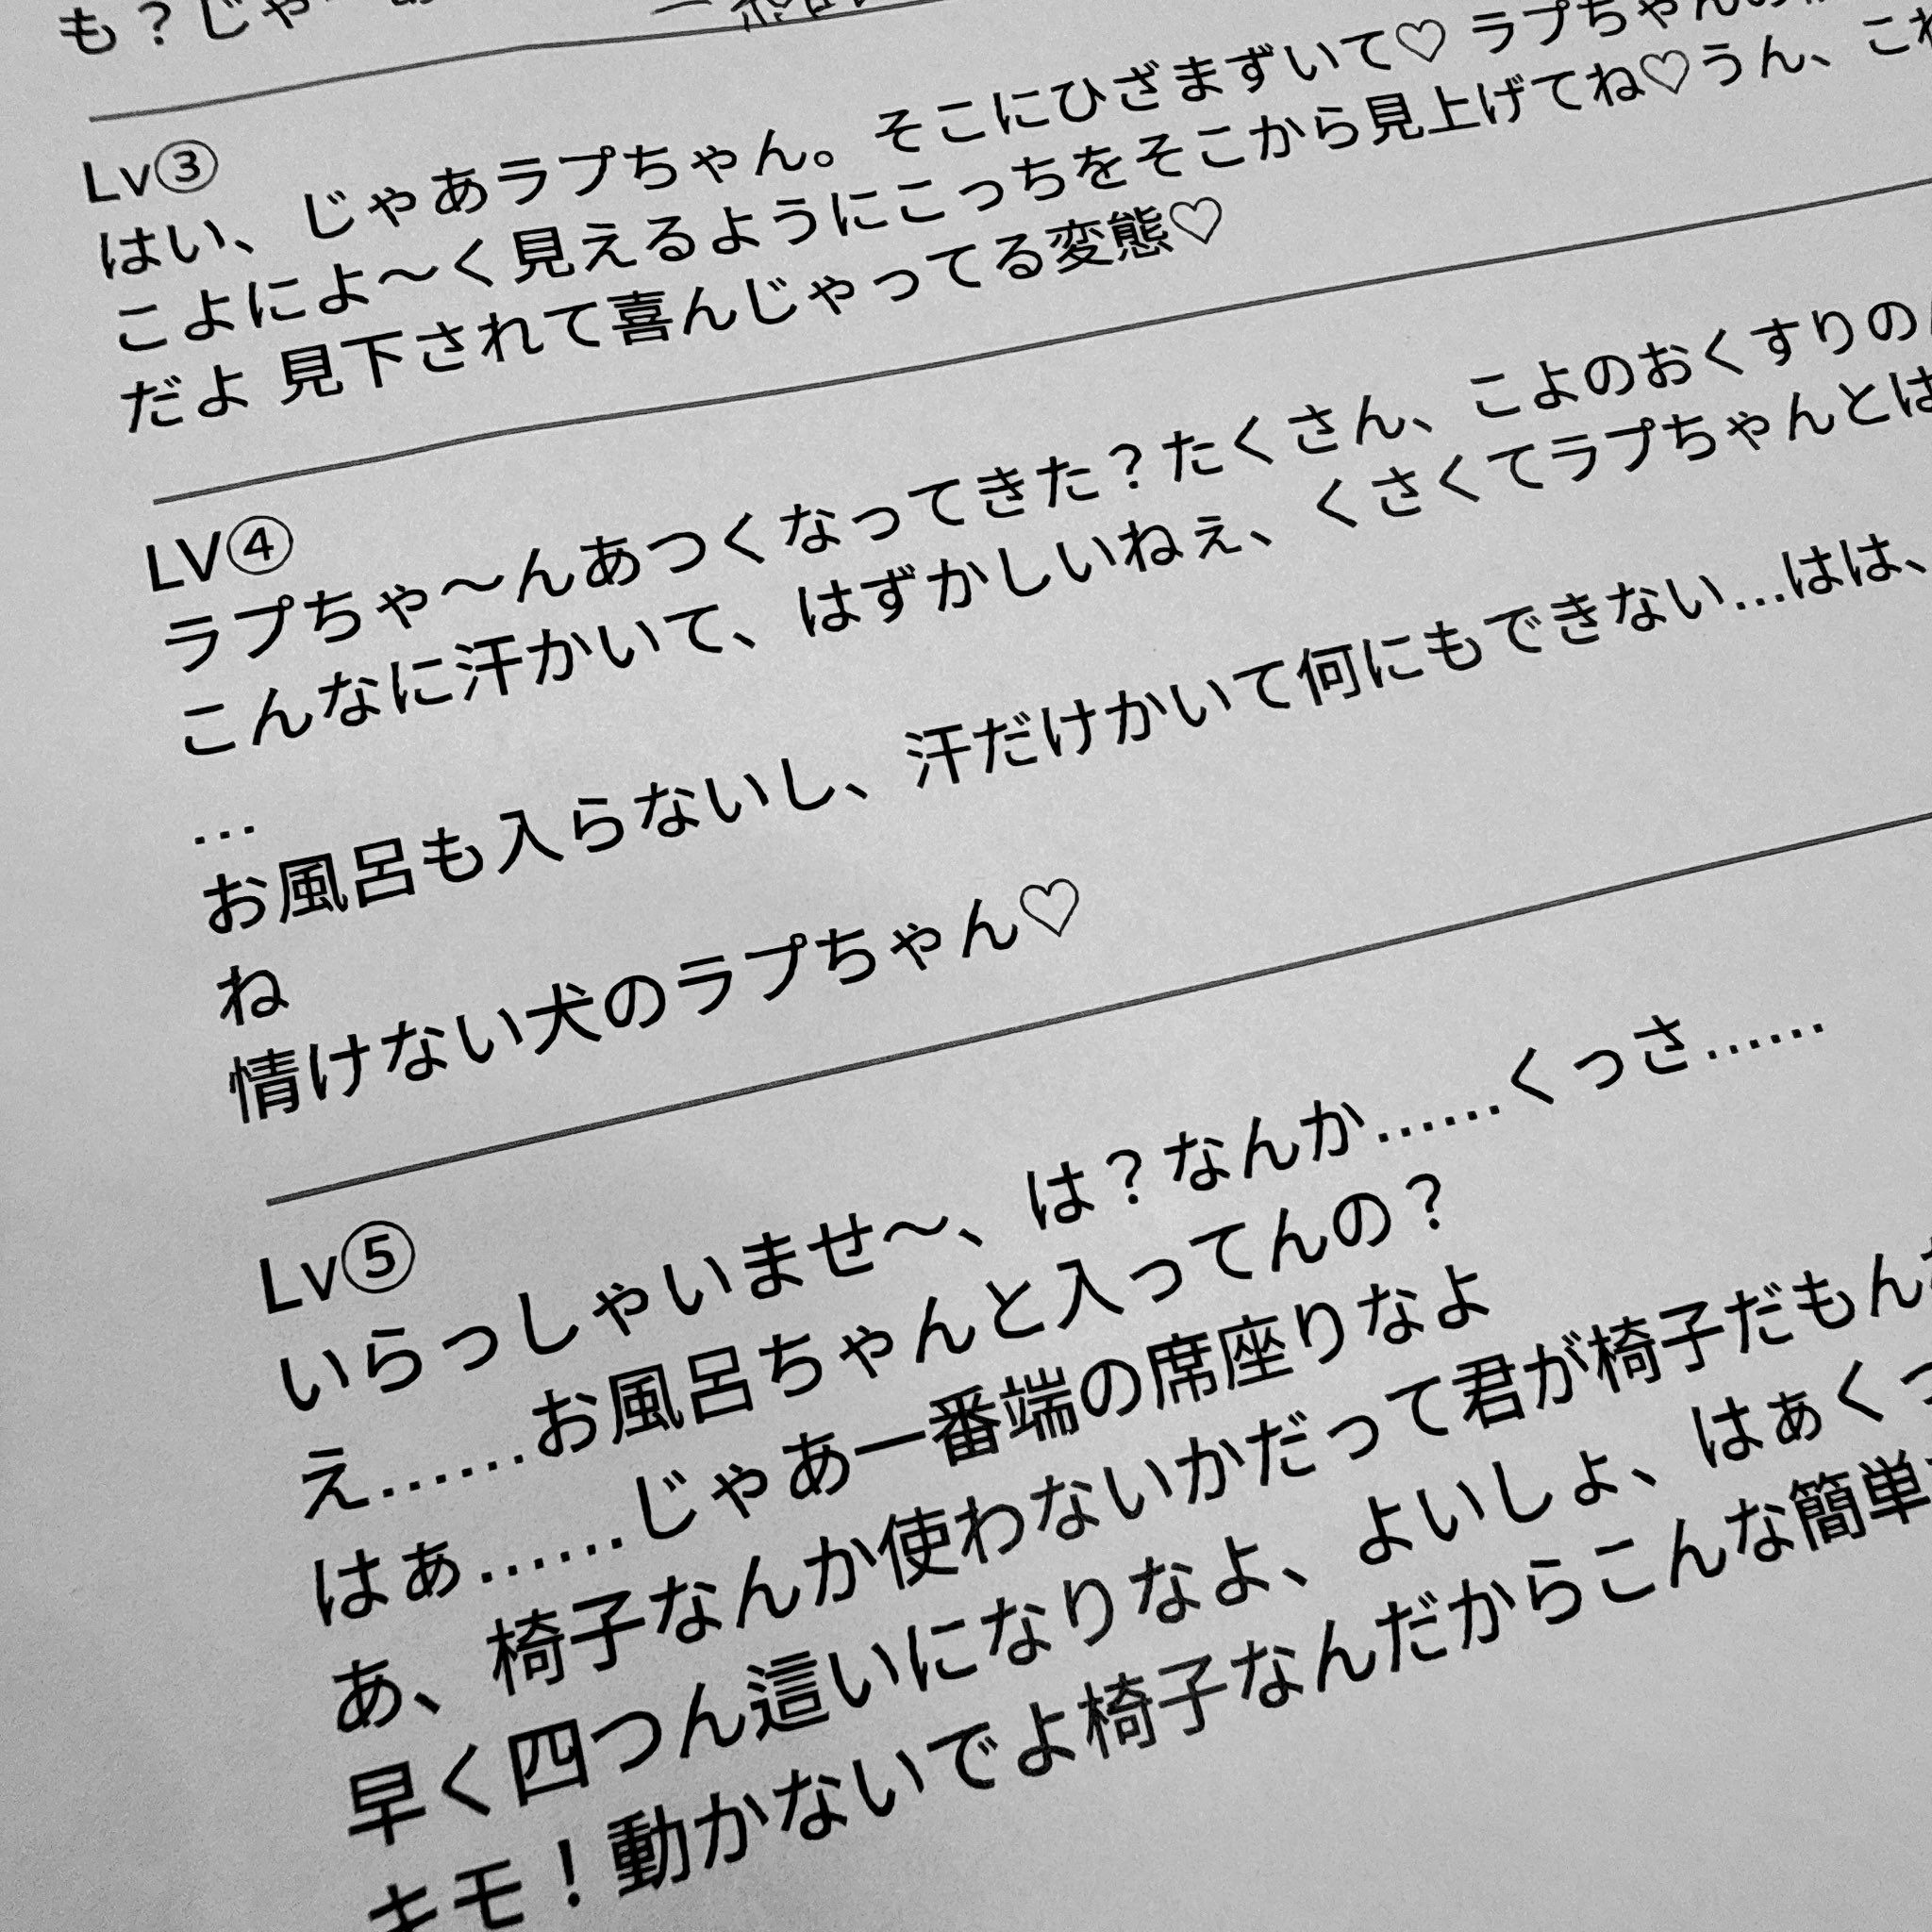 も？じゃ
Lv③
はい、じゃあラプちゃん。そこにひざまずいて♡ ラプちゃんの
こよによ〜く見えるようにこっちをそこから見上げてね♡うん、これ
だよ 見下されて喜んじゃってる変態♡
LV④
ラプちゃ〜んあつくなってきた？たくさん、こよのおくすりの
こんなに汗かいて、はずかしいねぇ、くさくてラプちゃんとは
…
お風呂も入らないし、汗だけかいて何にもできない…はは、
ね
情けない犬のラプちゃん♡
Lv⑤
いらっしゃいませ〜、は？なんか……くっさ……
え……お風呂ちゃんと入ってんの？
はぁ……じゃあ一番端の席座りなよ
あ、椅子なんか使わないかだって君が椅子だもん
早く四つん這いになりなよ、よいしょ、はぁくっ
キモ！動かないでよ椅子なんだからこんな簡単